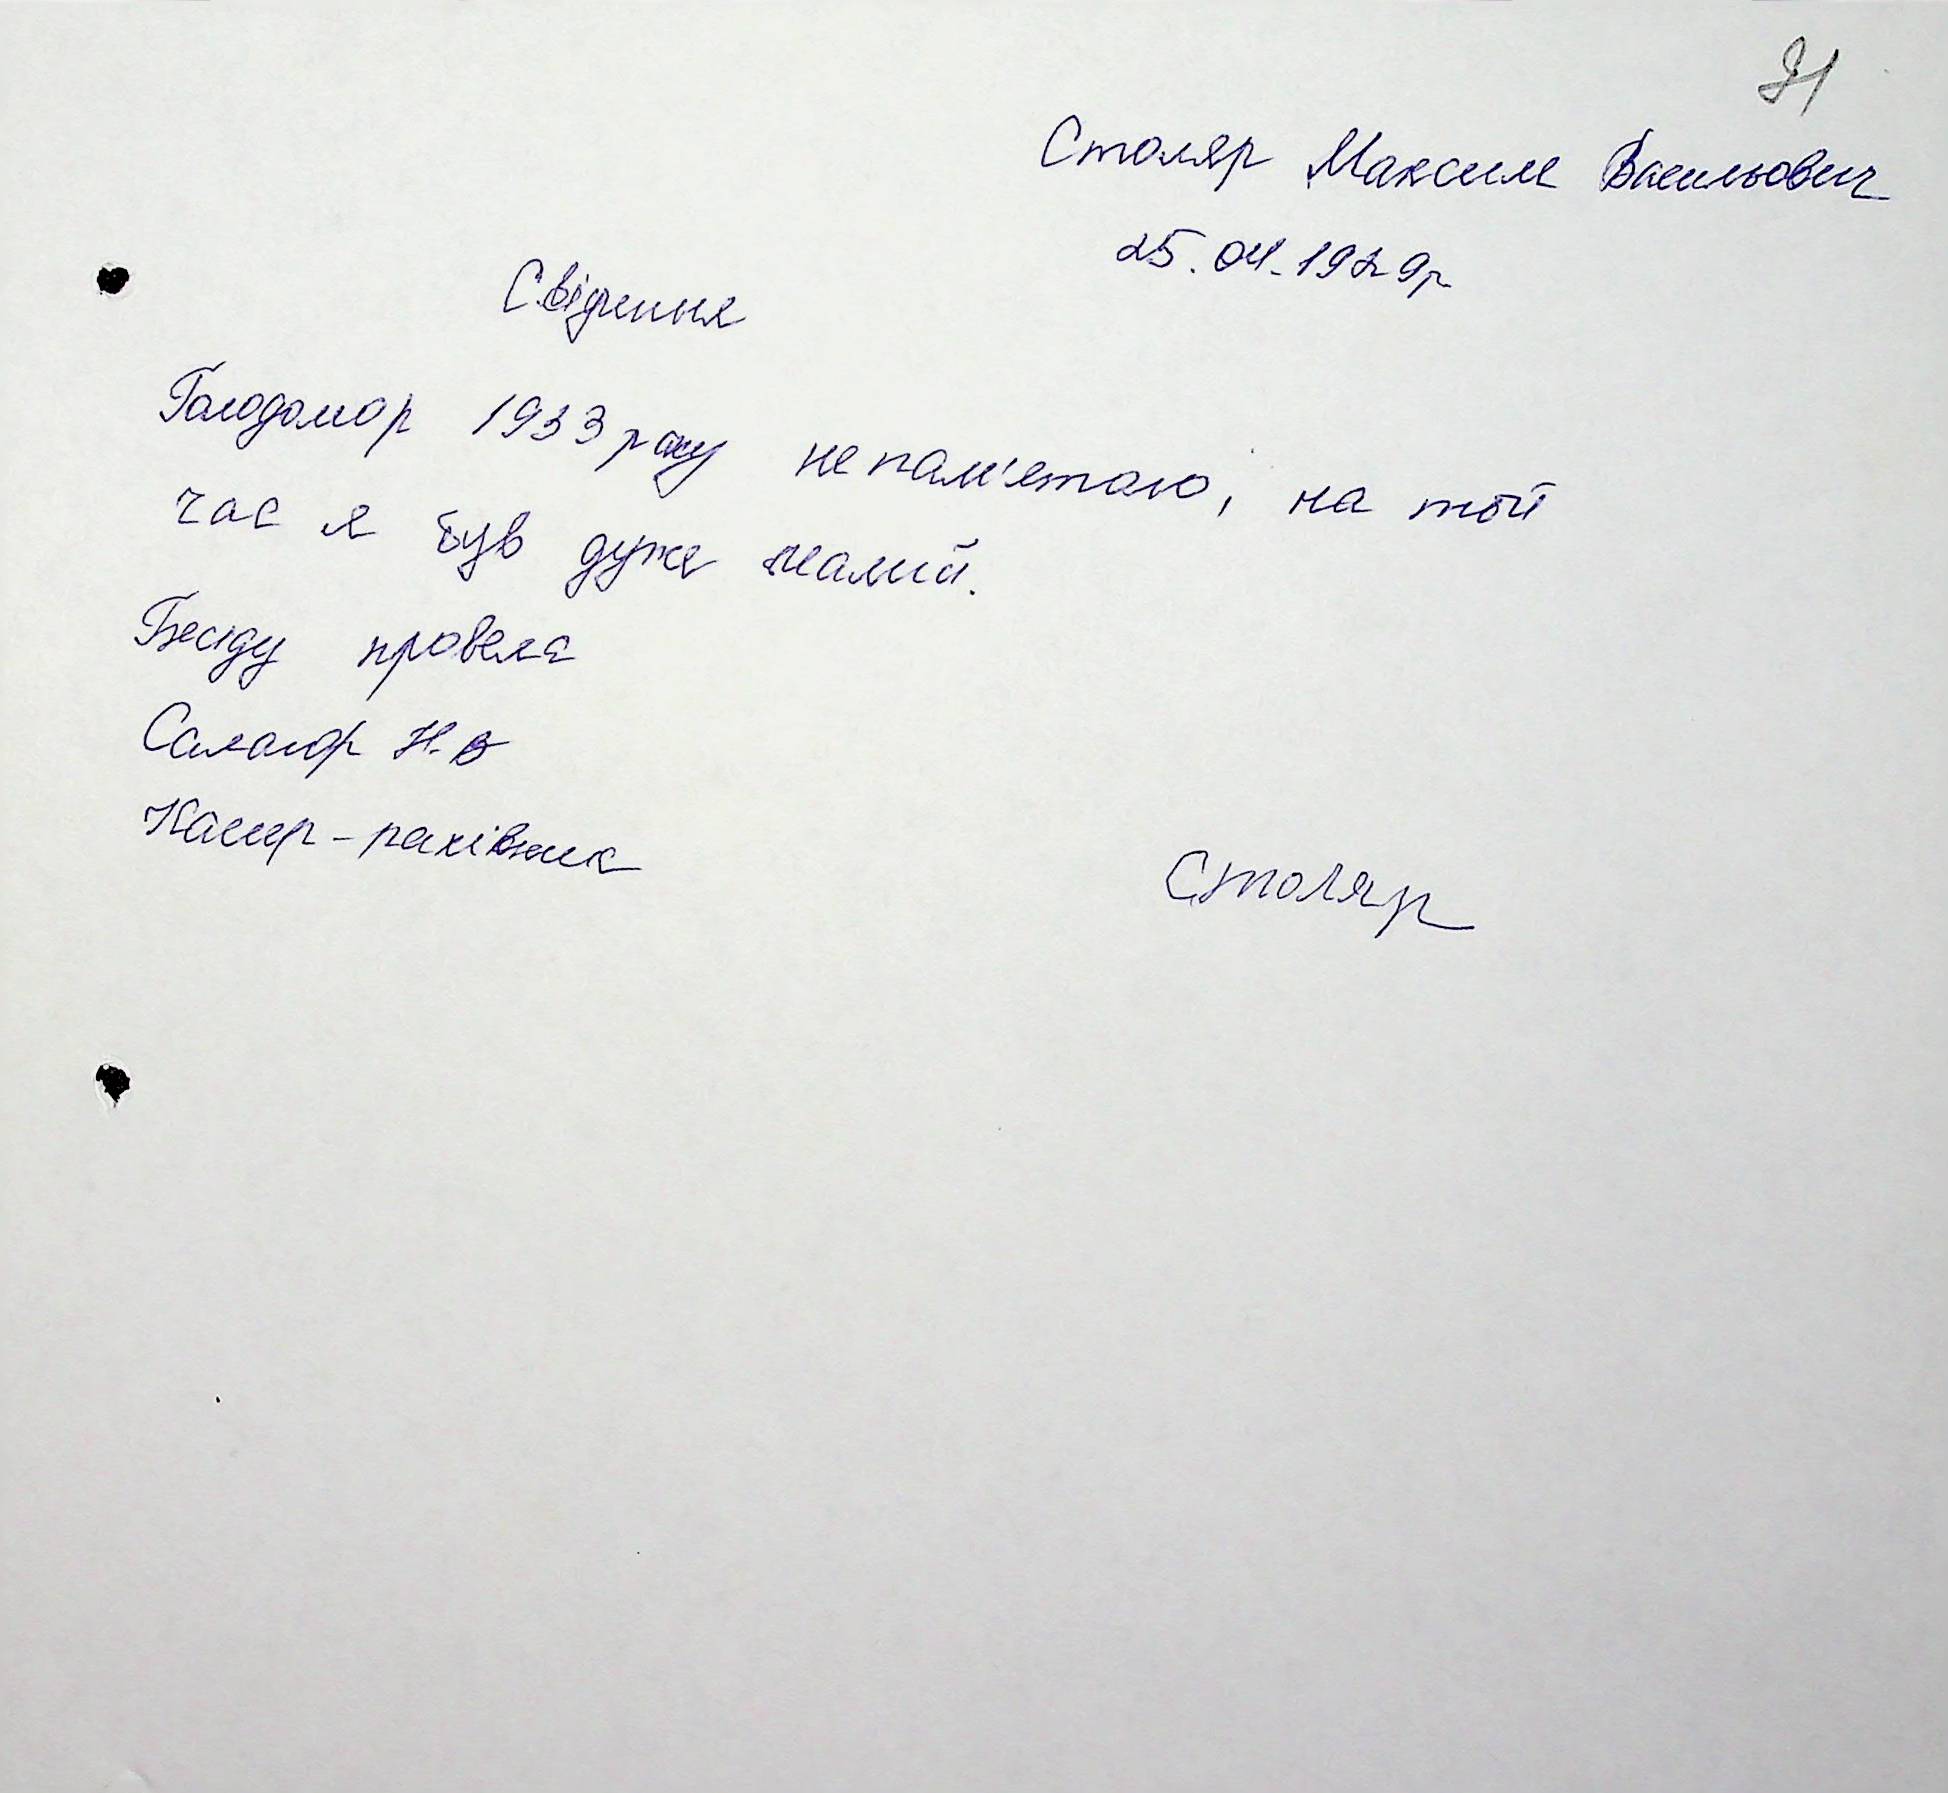 91
Столяр Максим Васильович
25.04.1929р.
Свідчення
Голодомор 1933 року не пам'ятаю, на той
час я був дуже малий.
Бесіду провела
Саламор Н.В
Касир-рахівник
Столяр